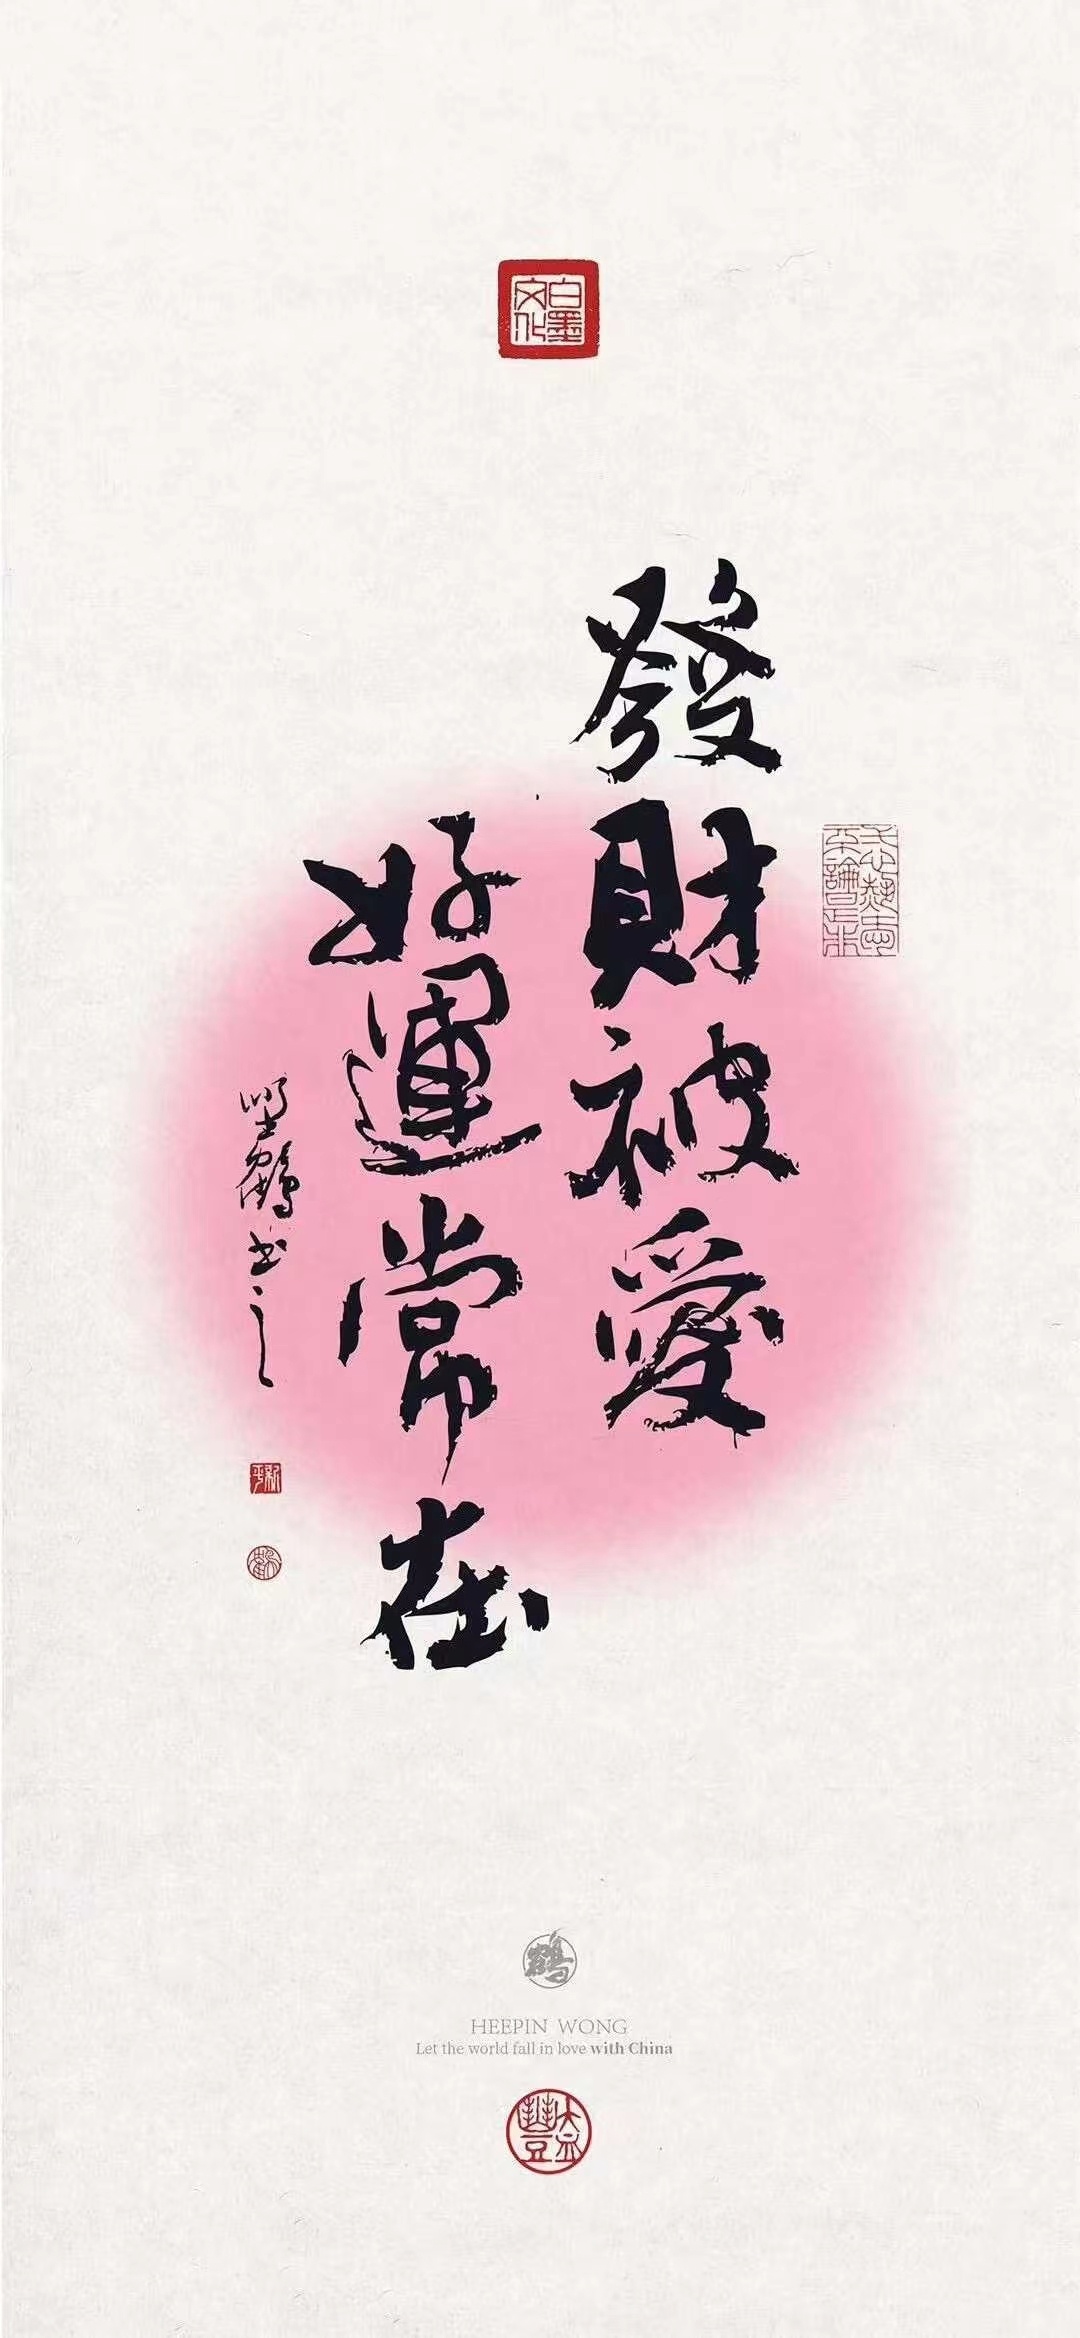 白墨文化
發財被愛
好運常在
墅鶴书之
新平
鶴
HEEPIN WONG
Let the world fall in love with China